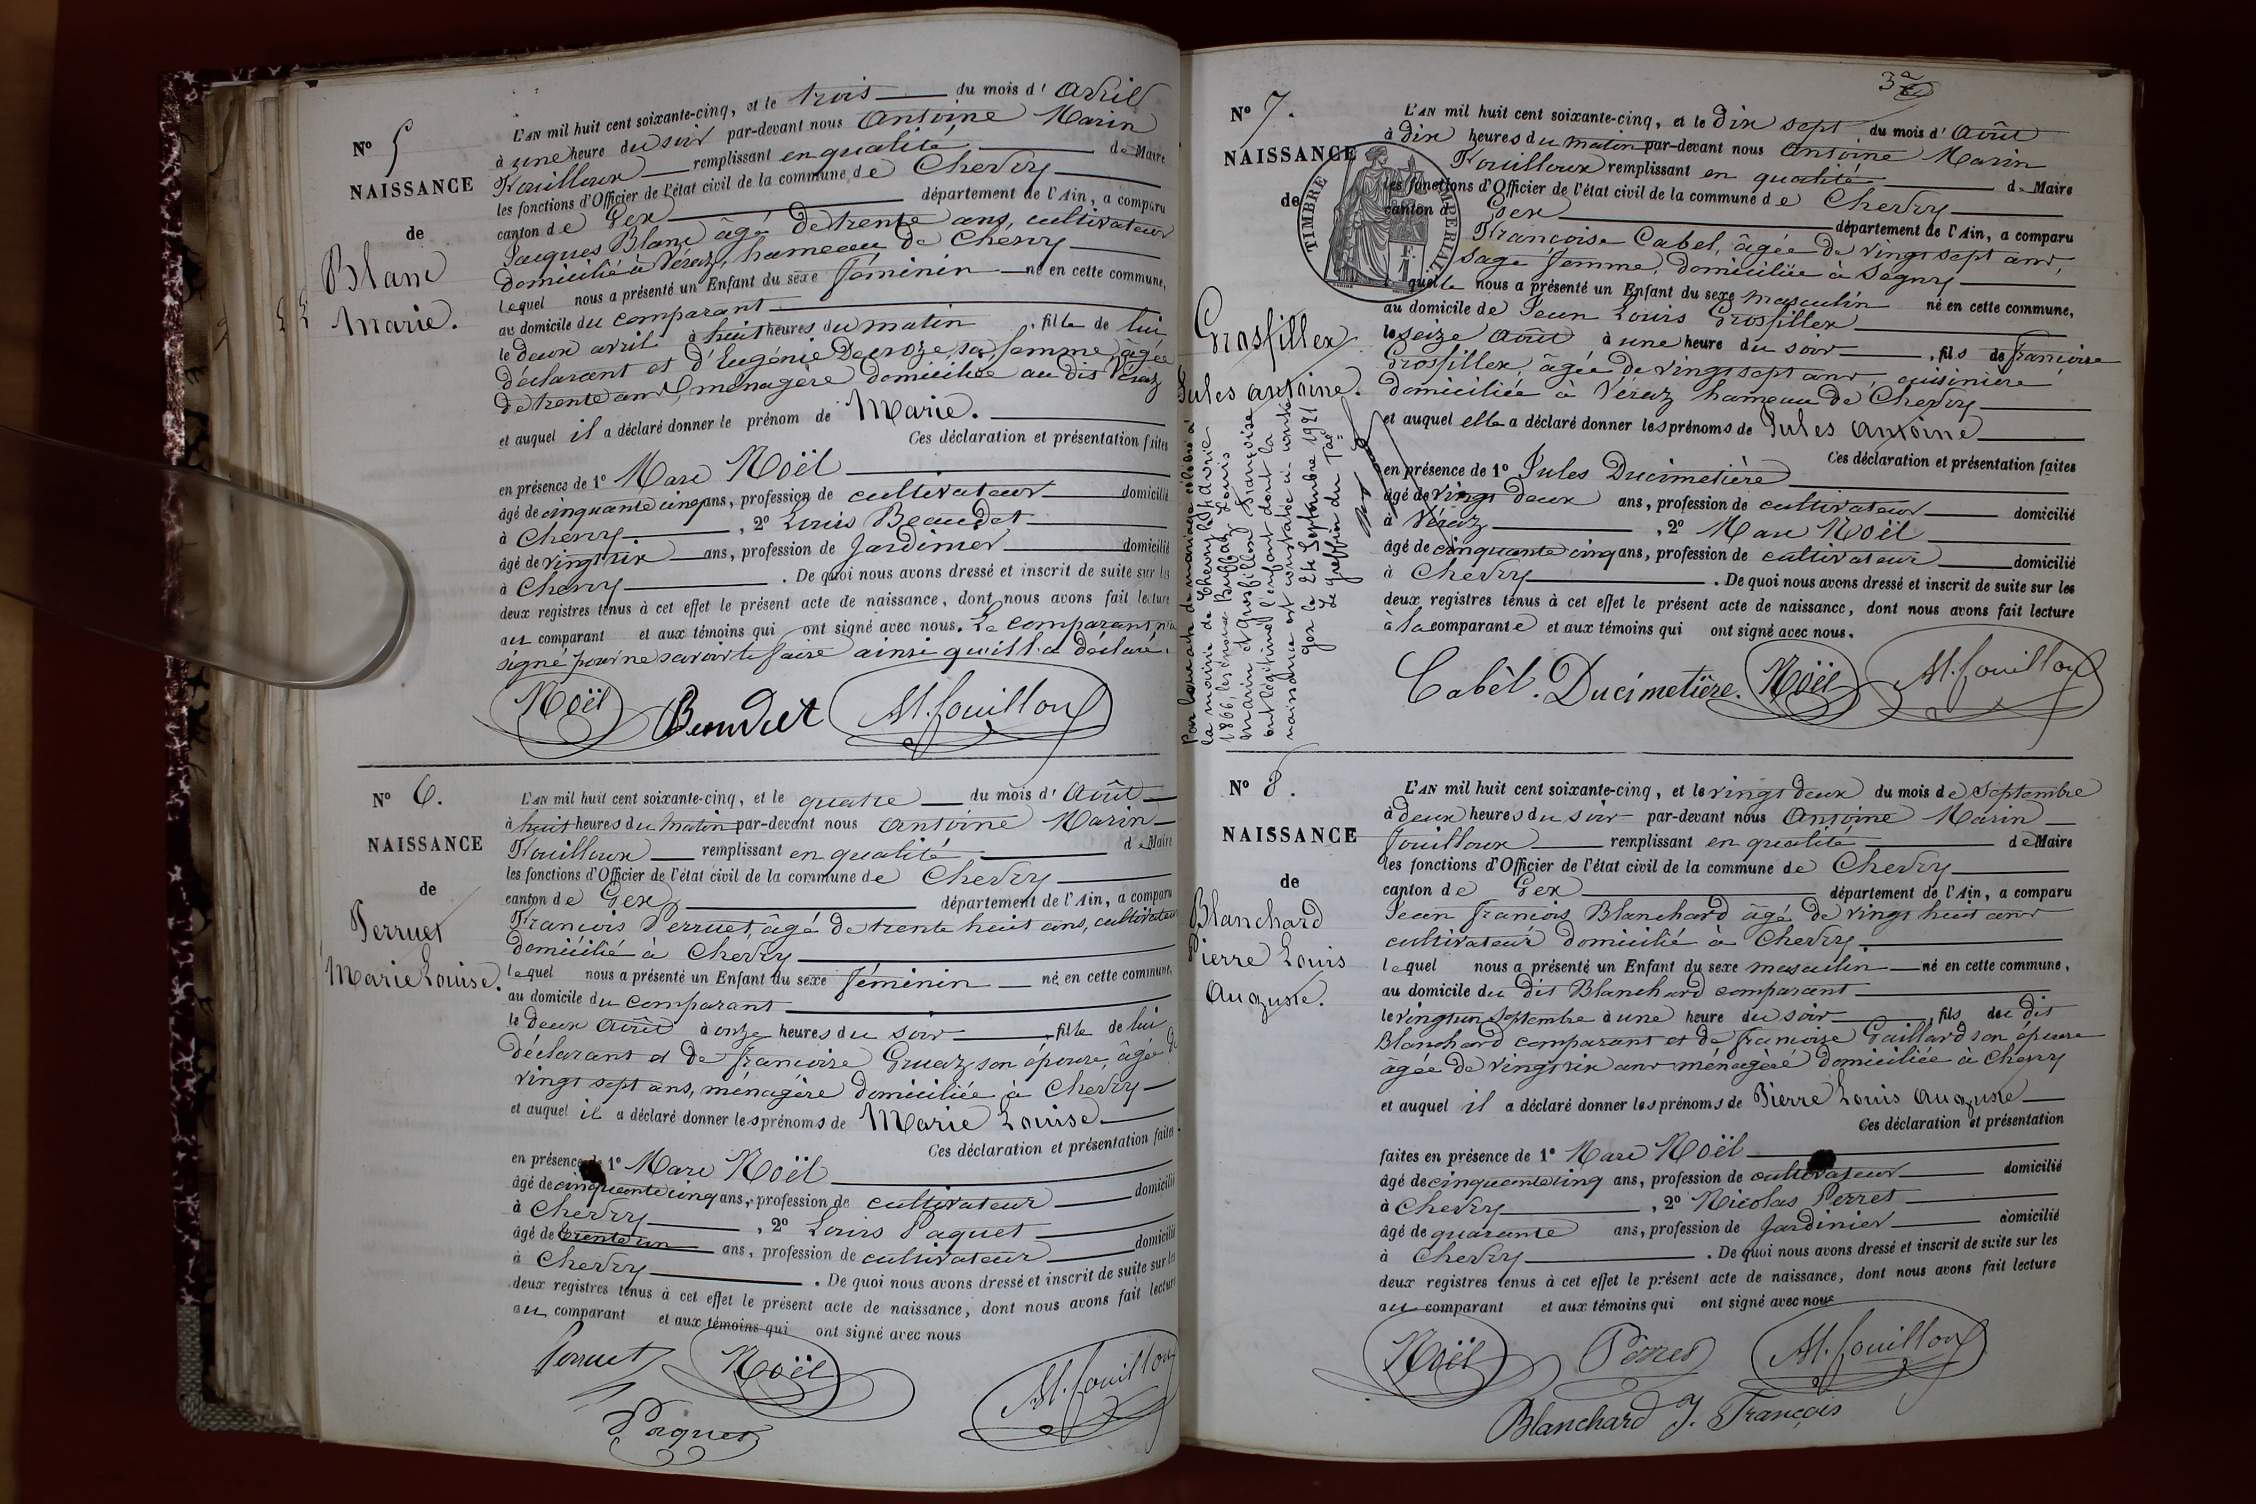 Nº 5
NAISSANCE
de
Blanc
Marie.
L'AN mil huit cent soixante-cinq, et le trois du mois d'Avril
à une heure du soir par-devant nous Antoine Marin
Fouilloux remplissant en qualité de Maire
les fonctions d'Officier de l'état civil de la commune de Chevry
canton de Gex département de l'Ain, a comparu
Jacques Blanc âgé de trente ans, cultivateur
domicilié à Véraz, hameau de Chevry
lequel nous a présenté un Enfant du sexe féminin né en cette commune,
au domicile du comparant
le deux avril à huit heures du matin, fille de lui
déclarant et d'Eugénie Decroze, sa femme, âgée
de trente ans, ménagère domiciliée au dit Véraz
et auquel il a déclaré donner le prénom de Marie.
Ces déclaration et présentation faites
en présence de 1º Marc Noël
âgé de cinquante cinq ans, profession de cultivateur domicilié
à Chevry, 2º Louis Beaudet
âgé de vingt six ans, profession de Jardinier domicilié
à Chevry. De quoi nous avons dressé et inscrit de suite sur les
deux registres tenus à cet effet le présent acte de naissance, dont nous avons fait lecture
au comparant et aux témoins qui ont signé avec nous. Le comparant n'a
signé pour ne savoir le faire ainsi qu'il l'a déclaré.
Noël Beaudet M. fouilloux
Nº 6.
NAISSANCE
de
Perruet
Marie Louise.
L'AN mil huit cent soixante-cinq, et le quatre du mois d'Août
à huit heures du matin par-devant nous Antoine Marin
Fouilloux remplissant en qualité de Maire
les fonctions d'Officier de l'état civil de la commune de Chevry
canton de Gex département de l'Ain, a comparu
François Perruet, âgé de trente huit ans, cultivateur
domicilié à Chevry
lequel nous a présenté un Enfant du sexe féminin né en cette commune,
au domicile du comparant
le deux Août à onze heures du soir, fille de lui
déclarant et de françoise Gruaz son épouse, âgée de
vingt sept ans, ménagère domiciliée à Chevry
et auquel il a déclaré donner les prénoms de Marie Louise.
Ces déclaration et présentation faites
en présence de 1º Marc Noël
âgé de cinquante cinq ans, profession de cultivateur domicilié
à Chevry, 2º Louis Paquet
âgé de trente un ans, profession de cultivateur domicilié
à Chevry. De quoi nous avons dressé et inscrit de suite sur les
deux registres tenus à cet effet le présent acte de naissance, dont nous avons fait lecture
au comparant et aux témoins qui ont signé avec nous
Perruet Noël M. fouilloux
Paquet
3
Nº 7.
NAISSANCE
de
TIMBRE IMPERIAL
Grosfillex
Jules Antoine.
Par leur acte de mariage célébré à
la mairie de Chevry le
1866, les époux Buffaz Louis
marin et Grosfillex Françoise
ont légitimé l'enfant dont la
naissance est constatée ci-contre
Gex le 24 Septembre 1921
Le greffier du
L'AN mil huit cent soixante-cinq, et le dix sept du mois d'Août
à dix heures du matin par-devant nous Antoine Marin
Fouilloux remplissant en qualité de Maire
les fonctions d'Officier de l'état civil de la commune de Chevry
canton de Gex département de l'Ain, a comparu
Françoise Cabel, âgée de vingt sept ans,
sage femme, domiciliée à Ségny
laquelle nous a présenté un Enfant du sexe masculin né en cette commune,
au domicile de Jean Louis Grosfillex
le seize Août à une heure du soir, fils de françoise
Grosfillex, âgée de vingt sept ans, cuisinière
domiciliée à Véraz hameau de Chevry
et auquel elle a déclaré donner les prénoms de Jules Antoine
Ces déclaration et présentation faites
en présence de 1º Jules Ducimetière
âgé de vingt deux ans, profession de cultivateur domicilié
à Véraz, 2º Marc Noël
âgé de cinquante cinq ans, profession de cultivateur domicilié
à Chevry. De quoi nous avons dressé et inscrit de suite sur les
deux registres tenus à cet effet le présent acte de naissance, dont nous avons fait lecture
à la comparante et aux témoins qui ont signé avec nous.
Cabèl. Ducimetière. Noël M. fouilloux
Nº 8.
NAISSANCE
de
Blanchard
Pierre Louis
Auguste.
L'AN mil huit cent soixante-cinq, et le vingt deux du mois de Septembre
à deux heures du soir par-devant nous Antoine Marin
fouilloux remplissant en qualité de Maire
les fonctions d'Officier de l'état civil de la commune de Chevry
canton de Gex département de l'Ain, a comparu
Jean françois Blanchard âgé de vingt huit ans
cultivateur domicilié à Chevry.
lequel nous a présenté un Enfant du sexe masculin né en cette commune,
au domicile du dit Blanchard comparant
le vingt un Septembre à une heure du soir, fils du dit
Blanchard comparant et de françoise Gaillard son épouse
âgée de vingt six ans ménagère domiciliée à Chevry
et auquel il a déclaré donner les prénoms de Pierre Louis Auguste
Ces déclaration et présentation
faites en présence de 1º Marc Noël
âgé de cinquante cinq ans, profession de cultivateur domicilié
à Chevry, 2º Nicolas Perret
âgé de quarante ans, profession de Jardinier domicilié
à Chevry. De quoi nous avons dressé et inscrit de suite sur les
deux registres tenus à cet effet le présent acte de naissance, dont nous avons fait lecture
au comparant et aux témoins qui ont signé avec nous
Noël Perret M. fouilloux
Blanchard J. François